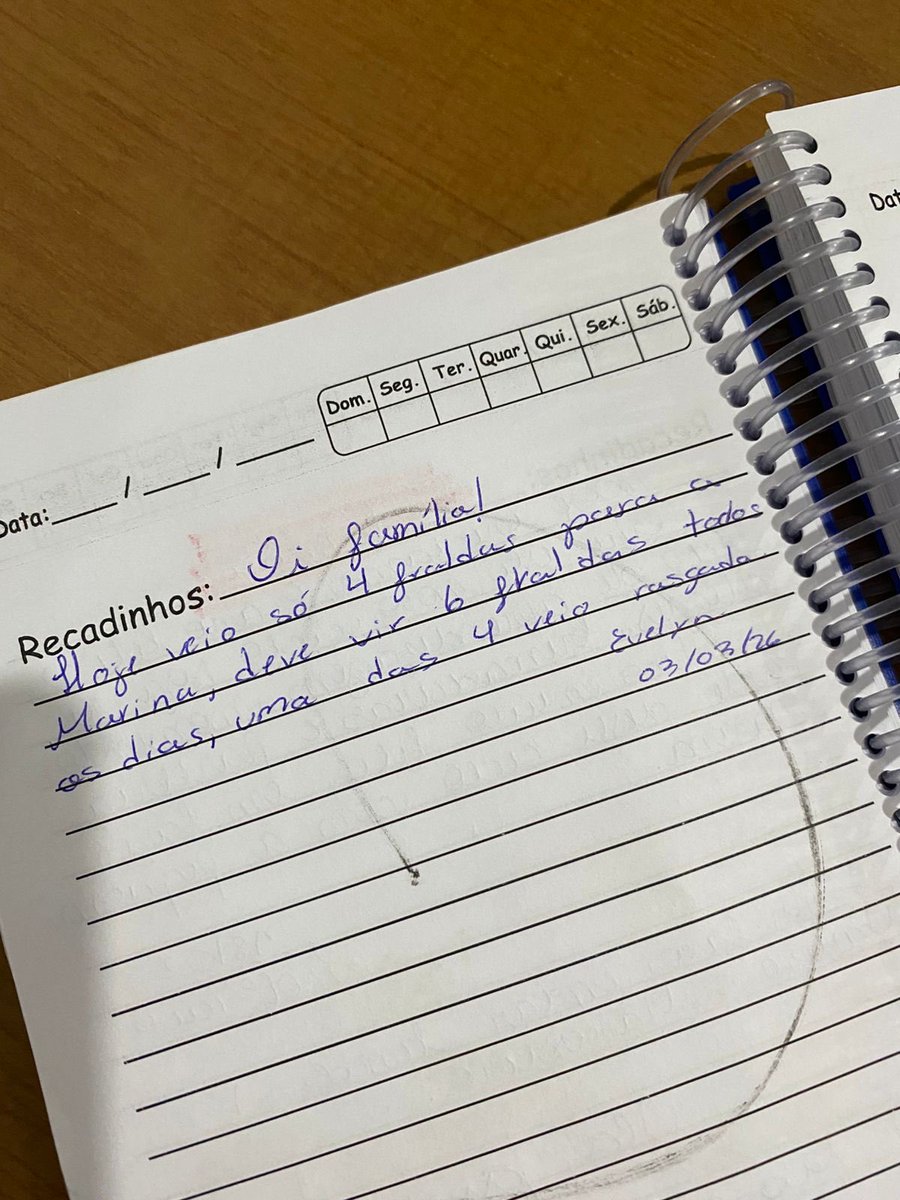 Dom. Seg. Ter. Quar. Qui. Sex. Sáb.
Data: ____ / ____ / _____
Recadinhos: Oi família!
Hoje veio só 4 fraldas para a
Marina, deve vir 6 fraldas todos
os dias, uma das 4 veio rasgada
Evelyn
03/03/26
Dat